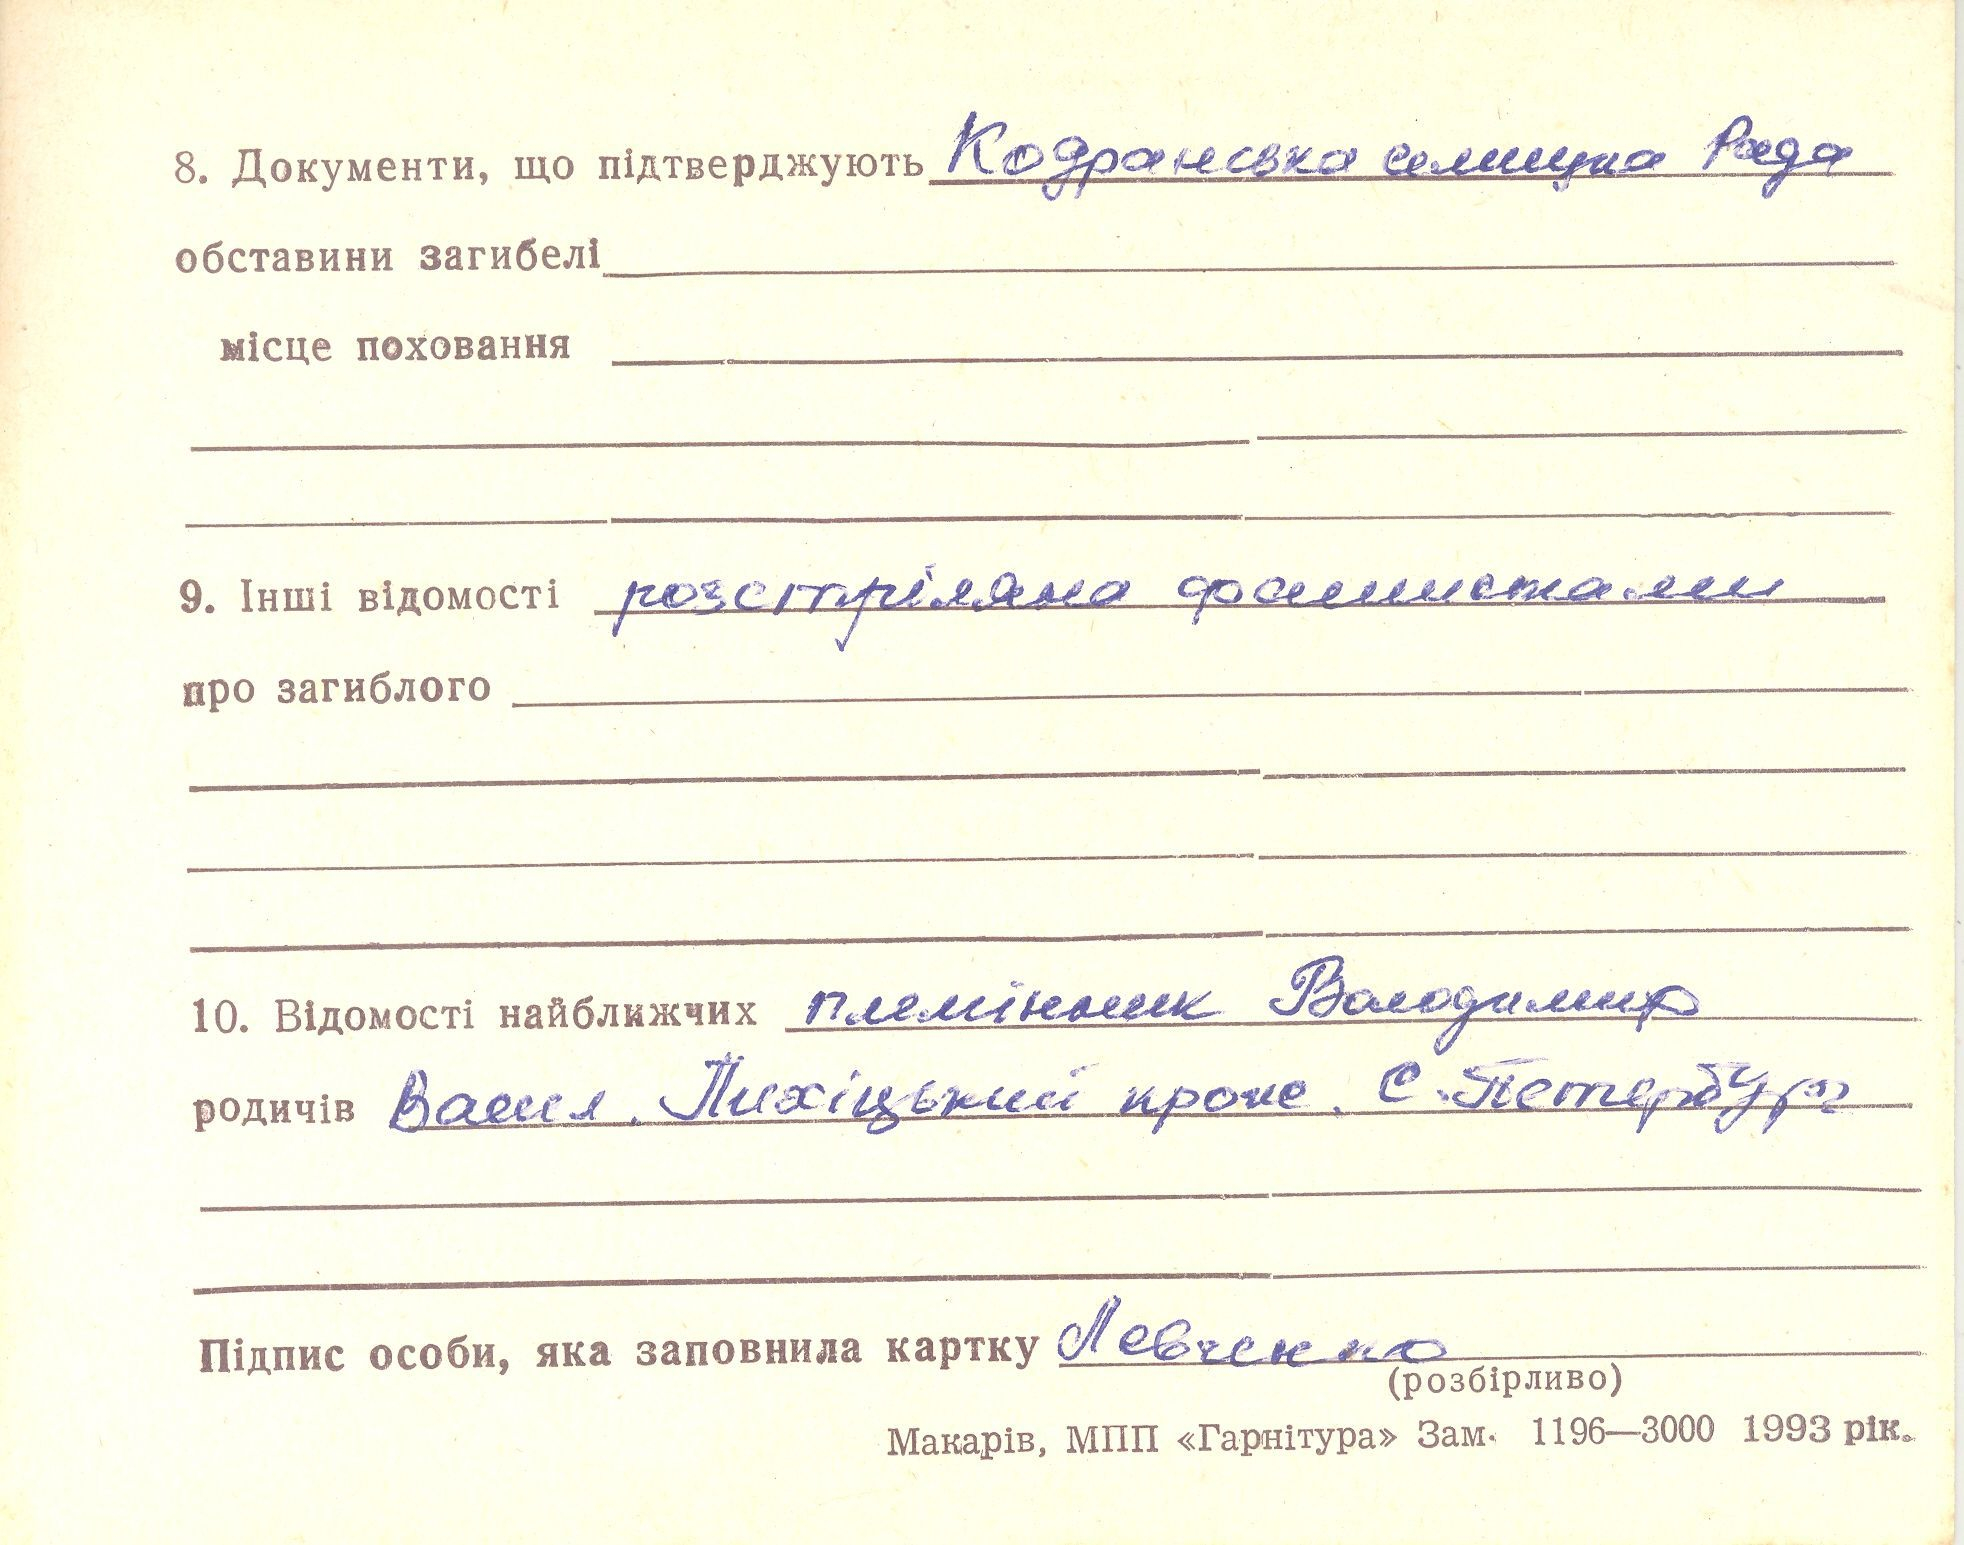 8. Документи, що підтверджують Кодранська селищна Рада
обставини загибелі
місце поховання
9. Інші відомості розстріляна фашистами
про загиблого
10. Відомості найближчих племінник Володимир
родичів Васил. Пихіцький прож. С. Петербург
Підпис особи, яка заповнила картку Левченко
(розбірливо)
Макарів, МПП «Гарнітура» Зам. 1196—3000 1993 рік.